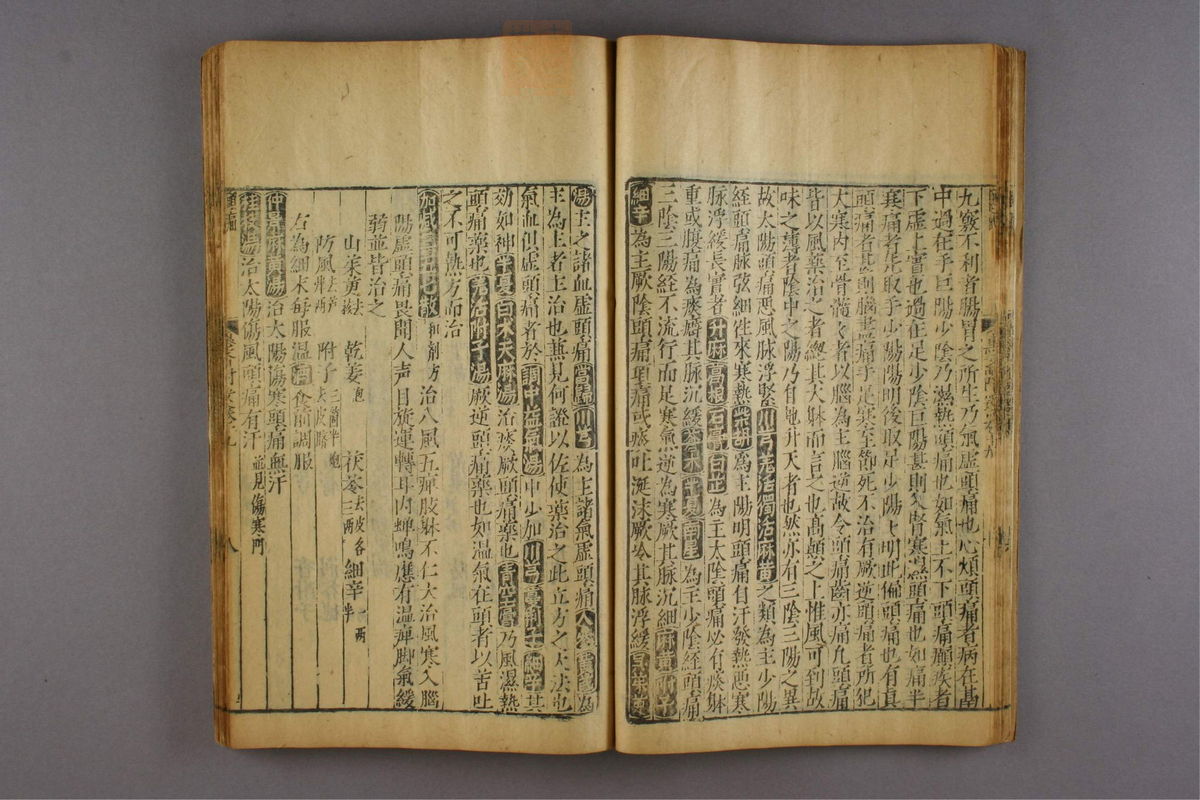 九竅不利者腸胃之所生乃氣虛頭痛也心煩頭痛者病在鬲
中過在手巨陽少陰乃濕熱頭痛也如氣上不下頭痛巔疾者
下虛上實也過在足少陰巨陽甚則入腎寒濕頭痛也如痛半
寒痛者先取手少陽陽明後取足少陽陽明此偏頭痛也有真
頭痛者甚則腦盡痛手足寒至節死不治有厥逆頭痛者所犯
大寒內至骨髓髓者以腦為主腦逆故令頭痛齒亦痛凡頭痛
皆以風藥治之者緫其大躰而言之也高巔之上惟風可到故
味之薄者陰中之陽乃自地升天者也然亦有三陰三陽之異
故太陽頭痛惡風脉浮緊川芎羌活獨活麻黃之類為主少陽
經頭痛脉弦細徃來寒熱柴胡為主陽明頭痛自汗發熱惡寒
脉浮緩長實者升麻葛根石膏白芷為主太陰頭痛必有痰躰
重或腹痛為痰癖其脉沉緩蒼术半夏南星為主少陰經頭痛
三陰三陽經不流行而足寒氣逆為寒厥其脉沉細麻黃附子
細辛為主厥陰頭痛項痛或痰吐涎沫厥冷其脉浮緩吳茱萸
湯主之諸血虛頭痛當歸川芎為主諸氣虛頭痛人參黃耆為
主為主者主治也兼見何證以佐使藥治之此立方之大法也
氣血俱虛頭痛者於調中益氣湯中少加川芎蔓荊子細辛其
効如神半夏白术天麻湯治痰厥頭痛藥也青空膏乃風濕熱
頭痛藥也羌活附子湯厥逆頭痛藥也如溫氣在頭者以苦吐
之不可熱方而治
加減三五七散和劑方治八風五痺肢躰不仁大治風寒入腦
陽虛頭痛畏聞人声目旋運轉耳內蟬鳴應有溫痺脚氣緩
弱並皆治之
山茱萸去核 乾姜炮 茯苓去皮各三兩 細辛一兩半
防風去芦 附子三箇半炮去皮臍
右為細末每服溫酒食前調服
仲景麻黃湯治太陽傷寒頭痛無汗
桂枝湯治太陽傷風頭痛有汗並見傷寒門
八